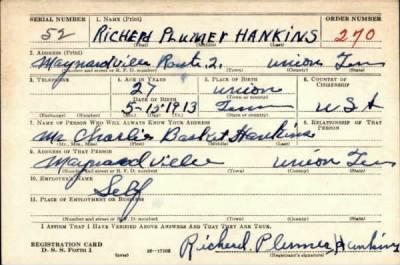 SERIAL NUMBER 1. NAME (Print) ORDER NUMBER
52 RICHERD PLUMER HANKINS 270
2. ADDRESS (Print)
Maynardville Route 2. Union Tenn
(Number and street or R. F. D. number) (Town) (County) (State)
3. TELEPHONE 4. AGE IN YEARS 5. PLACE OF BIRTH 6. COUNTRY OF CITIZENSHIP
27 Union
DATE OF BIRTH (Town or county)
5-12-1913 Tenn U.S.A
(Exchange) (No.) (Mo.) (Day) (Yr.) (State or country)
7. NAME OF PERSON WHO WILL ALWAYS KNOW YOUR ADDRESS 8. RELATIONSHIP OF THAT PERSON
Mr Charlie Hankins
(Mr., Mrs., Miss) (First) (Middle) (Last)
9. ADDRESS OF THAT PERSON
Maynardville Union Tenn
(Number and street or R. F. D. number) (Town) (County) (State)
10. EMPLOYER'S NAME
Self
11. PLACE OF EMPLOYMENT OR BUSINESS
(Number and street or R. F. D. number) (Town) (County) (State)
I AFFIRM THAT I HAVE VERIFIED ABOVE ANSWERS AND THAT THEY ARE TRUE.
REGISTRATION CARD
D. S. S. Form 1 Richerd. Plumer Hankins
(Registrant's signature)